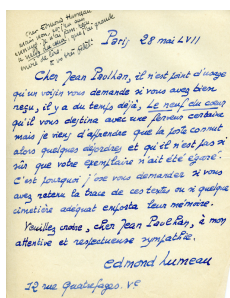 Cher Edmond Humeau
Paris 28 mai LVII
Cher Jean Paulhan, il n'est point d'usage
qu'un voisin vous demande si vous avez bien
reçu, il y a du temps déjà, Le neuf du cœur
qu'il vous destine avec une ferveur certaine
mais je viens d'apprendre que la poste connut
alors quelques désordres et qu'il n'est pas si
sûr que votre exemplaire n'ait été égaré.
C'est pourquoi j'ose vous demander si vous
avez retenu la trace de ces textes ou si quelque
cimetière adéquat emporta leur mémoire.
Veuillez croire, cher Jean Paulhan, à mon
attentive et respectueuse sympathie.
edmond humeau
12 rue Quatrefages. Ve